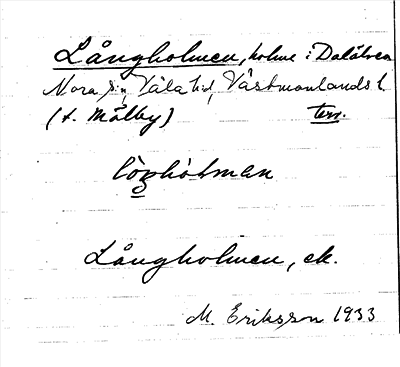 Långholmen, holme i Dalälven
Nora sn, Våla hd, Västmanlands l.
(t. Målby) terr.
Långholmen, ek.
M. Eriksson 1933